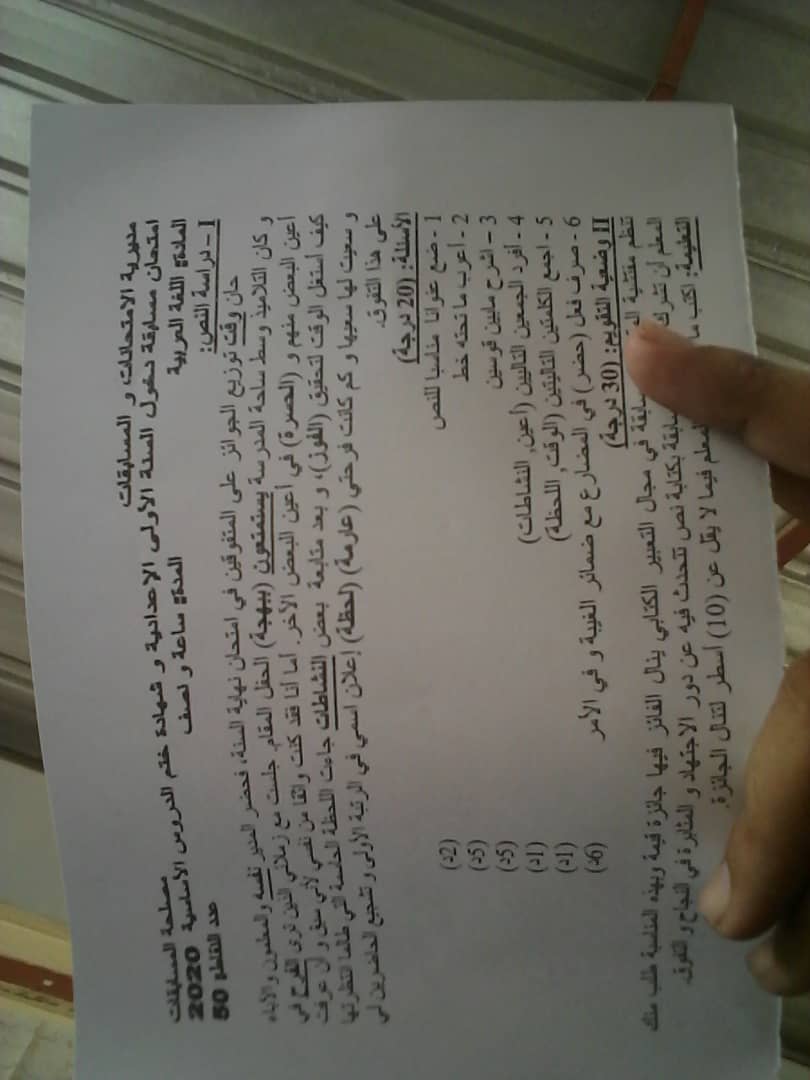 مديرية الامتحانات و المسابقات مصلحة المسابقات
امتحان مسابقة دخول السنة الأولى الإعدادية و شهادة ختم الدروس الأساسية 2020
المادة: اللغة العربية المدة: ساعة و نصف عدد النقاط: 50
I – دراسة النص:
حان وقت توزيع الجوائز على المتفوقين في امتحان نهاية السنة، فحضر المدير نفسه والمعلمون والآباء
و كان التلاميذ وسط ساحة المدرسة يستمتعون (ببهجة) الحفل المقام. جلست مع زملائي الذين نرى الفرح في
أعين البعض منهم و (الحسرة) في أعين البعض الآخر. أما أنا فقد كنت واثقا من نفسي لأني سبق و أن عرفت
كيف أستغل الوقت لتحقيق (الفوز)، و بعد متابعة بعض النشاطات جاءت اللحظة الحاسمة التي طالما انتظرتها
و سعيت لها سعيها و كم كانت فرحتي (عارمة) (لحظة) إعلان اسمي في الرتبة الأولى و تشجيع الحاضرين لي
على هذا التفوق.
الأسئلة: (20 درجة)
1 - ضع عنوانا مناسبا للنص (2د)
2 - أعرب ما تحته خط (5د)
3 – اشرح مابين قوسين (5د)
4 - أفرد الجمعين التاليين (أعين, النشاطات) (1د)
5 - اجمع الكلمتين التاليتين (الوقت, اللحظة) (1د)
6 - صرف فعل (حضر) في المضارع مع ضمائر الغيبة و في الأمر (6د)
II وضعية التقويم: (30 درجة)
تنظم مفتشية سابقة في مجال التعبير الكتابي ينال الفائز فيها جائزة قيمة وبهذه المناسبة طلب منك
المعلم أن تشارك سابقة بكتابة نص تتحدث فيه عن دور الاجتهاد و المثابرة في النجاح و التفوق.
التعليمة: اكتب ما المعلم فيما لا يقل عن (10) أسطر لتنال الجائزة.